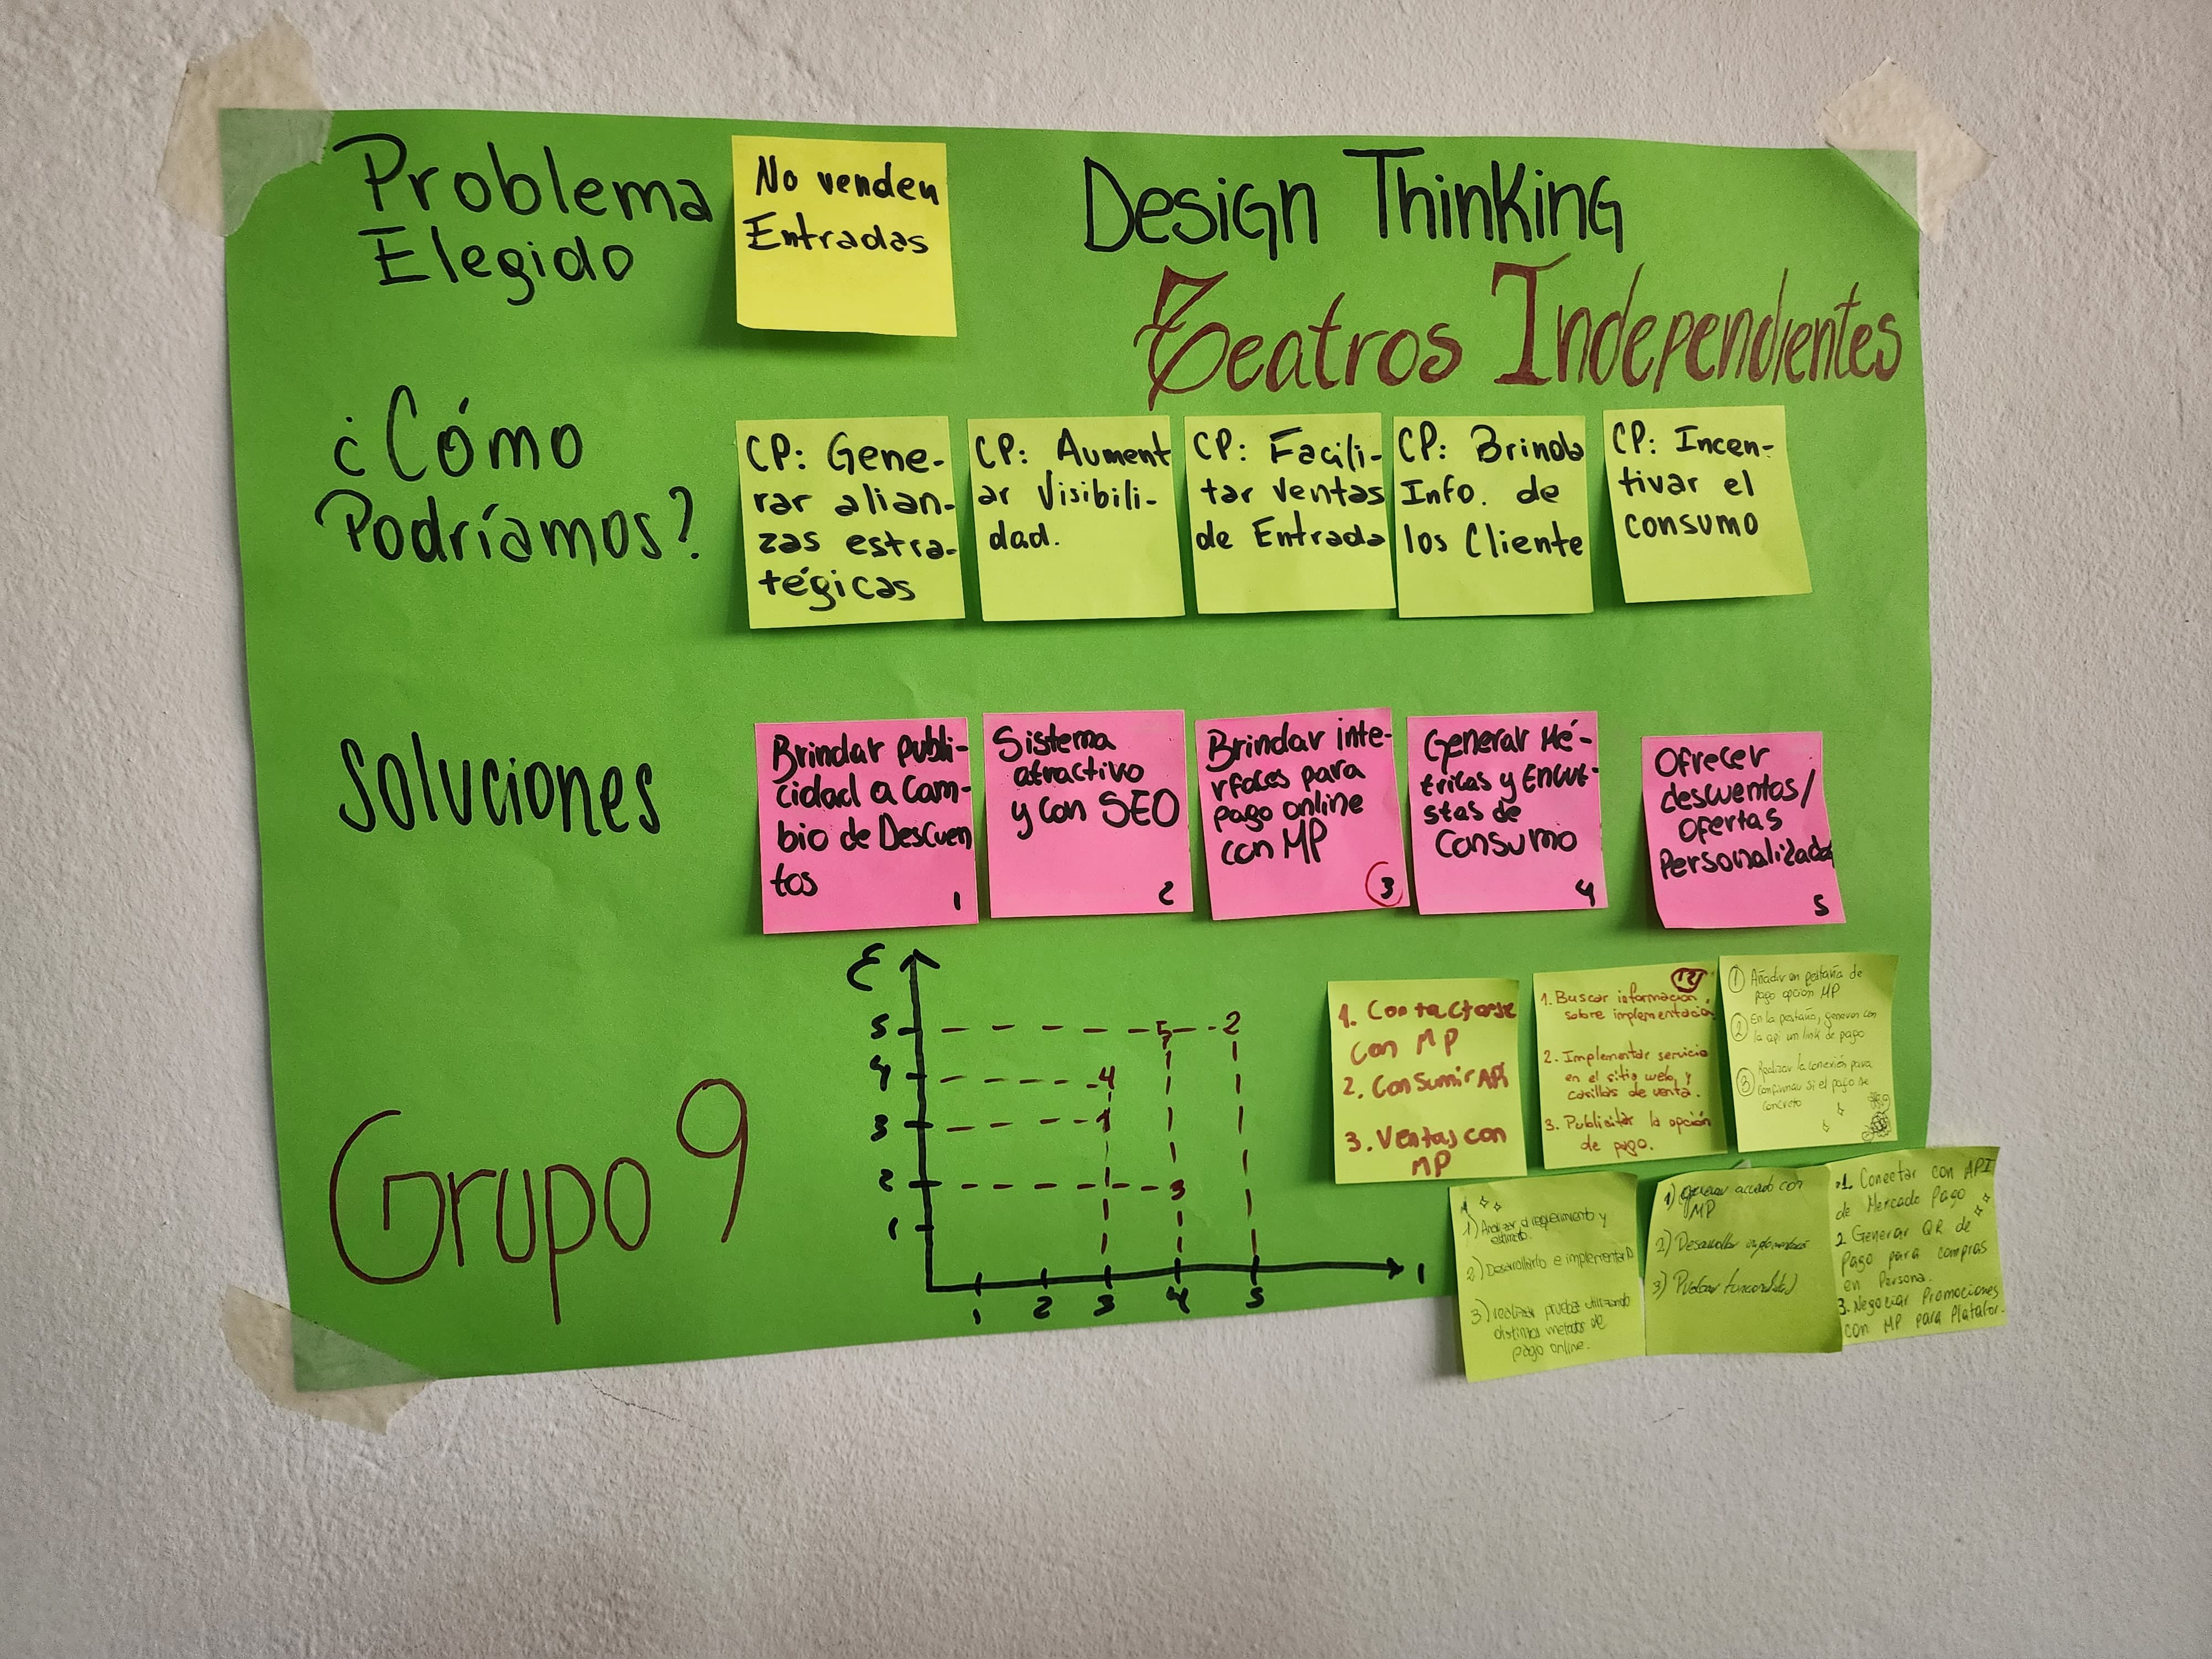 Problema
Elegido
No venden
Entradas
Design Thinking
Teatros Independientes
¿Cómo
Podríamos?
CP: Gene-
rar alian-
zas estra-
tégicas
CP: Aument
ar Visibili-
dad.
CP: Facili-
tar ventas
de Entrada
CP: Brinda
Info. de
los Cliente
CP: Incen-
tivar el
consumo
Soluciones
Brindar publi-
cidad a Cam-
bio de Descuen
tos
1
Sistema
atractivo
y con SEO
2
Brindar inte-
rfaces para
pago online
con MP
3
Generar Mé-
tricas y Encue-
stas de
Consumo
4
Ofrecer
descuentos/
Ofertas
Personalizada
5
Grupo 9
E
5
4
3
2
1
5
2
4
1
3
1
2
3
4
5
I
1. Contactarse
con MP
2. Consumir API
3. Ventas con
MP
1. Buscar información
sobre implementación
2. Implementar servicio
en el sitio web y
casillas de venta.
3. Publicitar la opción
de pago.
1 Añadir en pestaña de
pago opción MP
2 En la pestaña, generar con
la api un link de pago
3 Realizar la conexión para
confirmar si el pago se
concretó
1) Analizar el requerimiento y
2) Desarrollarlo e implementarlo
3) realizar pruebas utilizando
distintos metodos de
pago online.
1) generar acuerdo con
MP
2) Desarrollar
3) Probar
1. Conectar con API
de Mercado Pago
2. Generar QR de
Pago para compras
en Persona.
3. Negociar Promociones
con MP para Platafor.